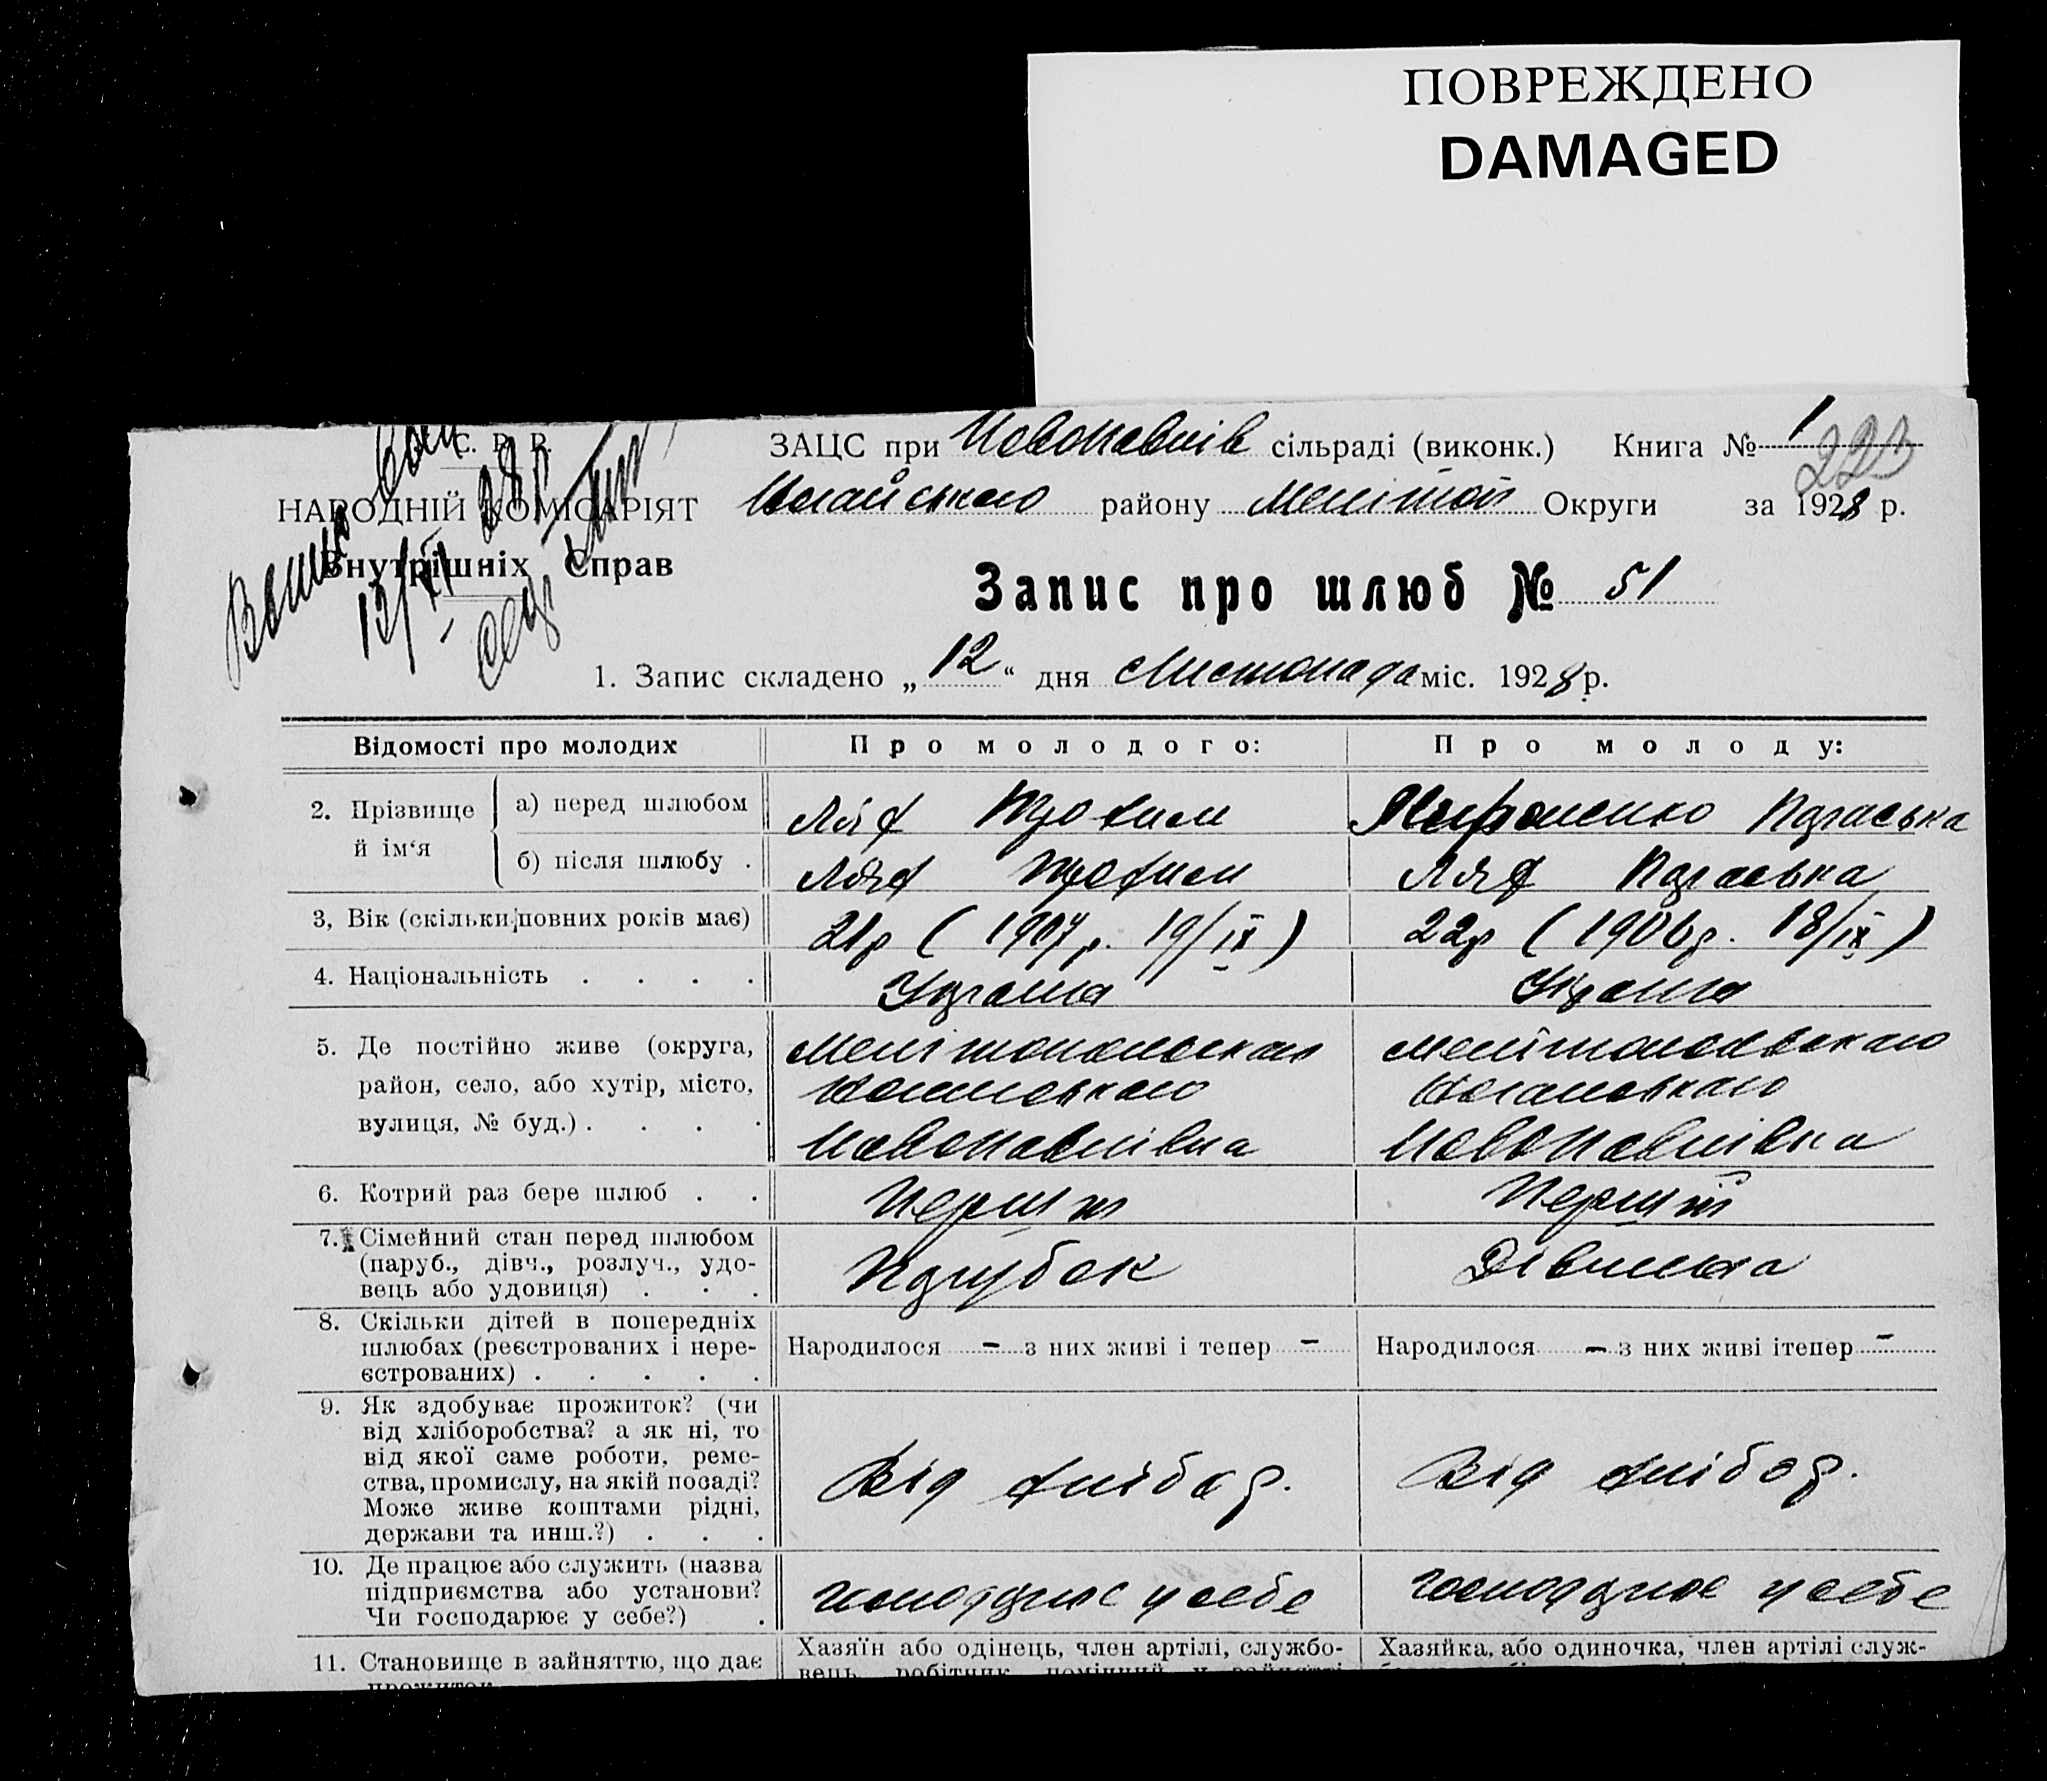 ПОВРЕЖДЕНО
DAMAGED
С. Р. Р.
ЗАЦС при Новопавлів сільраді (виконк.) Книга № 1
223
НАРОДНІЙ КОМІСАРІЯТ
району Мелітоп Округи за 1928 р.
Внутрішніх Справ
Запис про шлюб № 51
1. Запис складено „12“ дня Листопада міс. 1928 р.
Відомості про молодих
Про молодого:
Про молоду:
2. Прізвище й ім‘я
а) перед шлюбом
Лях Трохим
Мироненко Параська
б) після шлюбу .
Лях Трохим
Лях Параська
3, Вік (скільки повних років має)
21р (1907р. 19/IX)
22р (1906р. 18/IX)
4. Національність . . . .
Україна
Україна
5. Де постійно живе (округа,
район, село, або хутір, місто,
вулиця, № буд.) . . . .
Мелітопольскаго
Новопавлівка
Мелітопольскаго
Новопавлівка
6. Котрий раз бере шлюб . .
Перший
Перший
7. Сімейний стан перед шлюбом
(паруб., дівч., розлуч., удо-
вець або удовиця) . . .
Парубок
Дівчина
8. Скільки дітей в попередніх
шлюбах (реєстрованих і нере-
єстрованих) . . . . .
Народилося – з них живі і тепер –
Народилося – з них живі ітепер –
9. Як здобуває прожиток? (чи
від хліборобства? а як ні, то
від якої саме роботи, реме-
ства, промислу, на якій посаді?
Може живе коштами рідні,
держави та инш.?) . . .
Від хлібор.
Від хлібор.
10. Де працює або служить (назва
підприємства або установи?
Чи господарює у себе?) .
господарює у себе
господарює у себе
11. Становище в зайняттю, що дає
прожиток
Хазяїн або одінець, член артілі, службо-
вець, робітник, помічний у зайнятті
Хазяйка, або одиночка, член артілі служ-